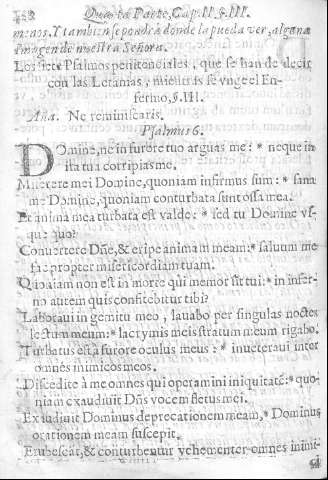 Quarta Parte, Cap. II. §. III.
menos. Y tambien se pondrà donde la pueda ver, alguna
Imagen de nuestra Señora.
Los siete Psalmos penitenciales, que se han de decir
con las Letanias, mientras se vnge el En-
fermo, §. III.
Aña. Ne reminiscaris.
Psalmus 6.
Domine, ne in furore tuo arguas me: * neque in
ira tua corripias me.
Miserere mei Domine, quoniam infirmus sum: * sana
me Domine, quoniam conturbata sunt ossa mea.
Et anima mea turbata est valde: * sed tu Domine vs-
que quo?
Convertere Dñe, & eripe animam meam: * salvum me
fac propter misericordiam tuam.
Quoniam non est in morte qui memor sit tui: * in infer-
no autem quis confitebitur tibi?
Laboravi in gemitu meo, lavabo per singulas noctes
lectum meum: * lacrymis meis stratum meum rigabo.
Turbatus est à furore oculus meus: * inveteravi inter
omnes inimicos meos.
Discedite à me omnes qui operamini iniquitatē: * quo-
niam exaudivit Dñs vocem fletus mei.
Exaudivit Dominus deprecationem meam, * Dominus
orationem meam suscepit.
Erubescat, & conturbentur vehementer omnes inimi-